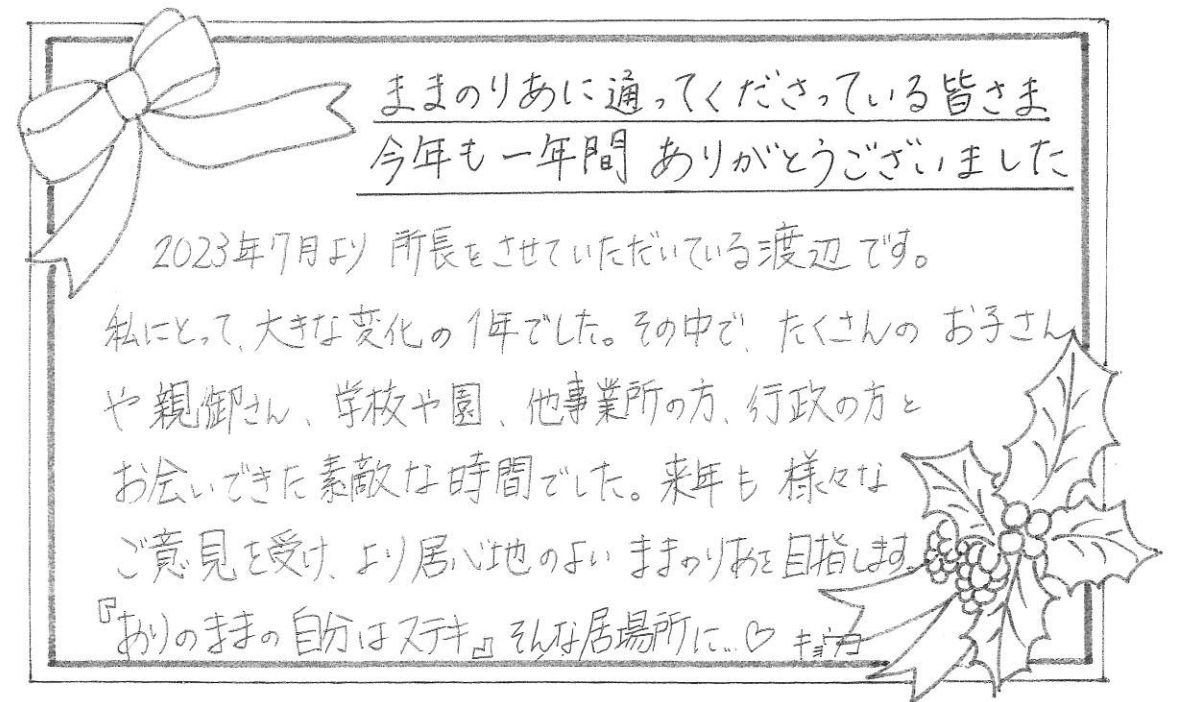 ままのりあに通ってくださっている皆さま
今年も一年間 ありがとうございました
2023年7月より 所長をさせていただいている渡辺です。
私にとって、大きな変化の1年でした。その中で、たくさんの お子さん
や親御さん、学校や園、他事業所の方、行政の方と
お会いできた素敵な時間でした。来年も 様々な
ご意見を受け、より居心地のよい ままのりあを目指します。
『ありのままの自分はステキ』そんな居場所に…♡